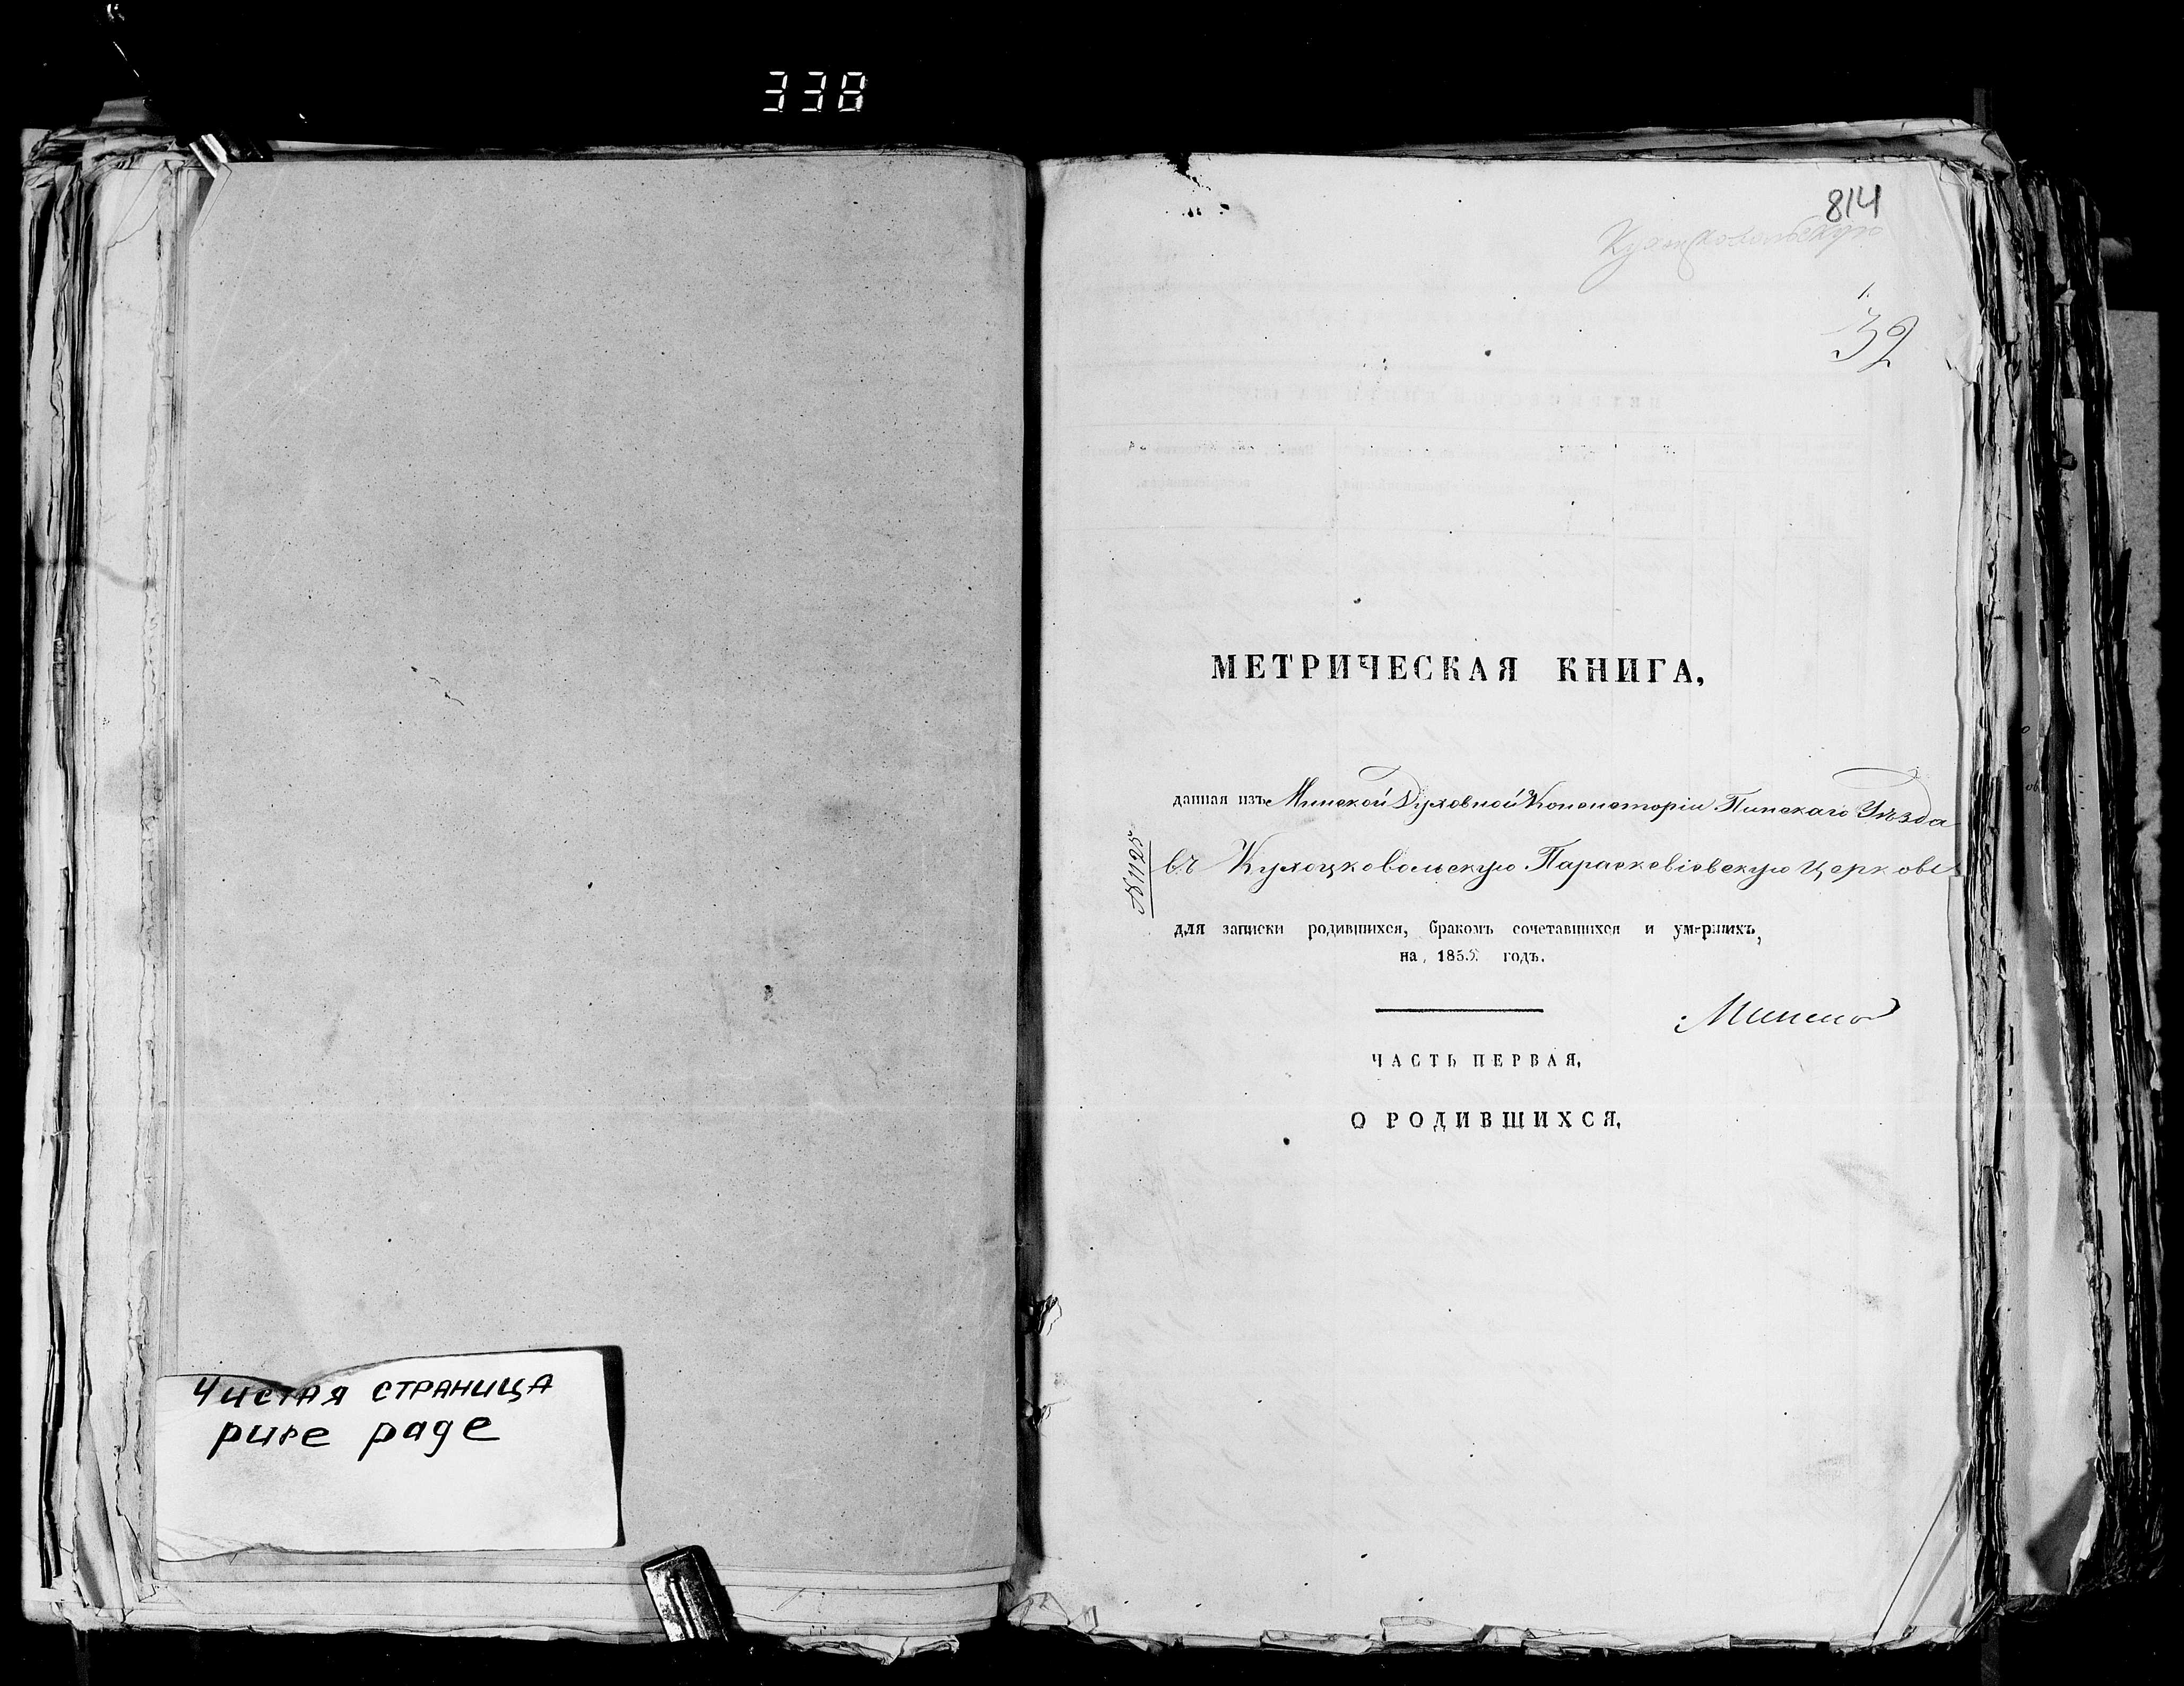 338
Чистая страница
pure page
814
1.
32
МЕТРИЧЕСКАЯ КНИГА,
данная изъ Минской Духовной Консисторіи Пинскаго Уѣзда
№ 1125
въ Кухоцковольскую Параскевіевскую Церковь
для записки родившихся, бракомъ сочетавшихся и умершихъ,
на 1855 годъ.
ЧАСТЬ ПЕРВАЯ,
О РОДИВШИХСЯ,